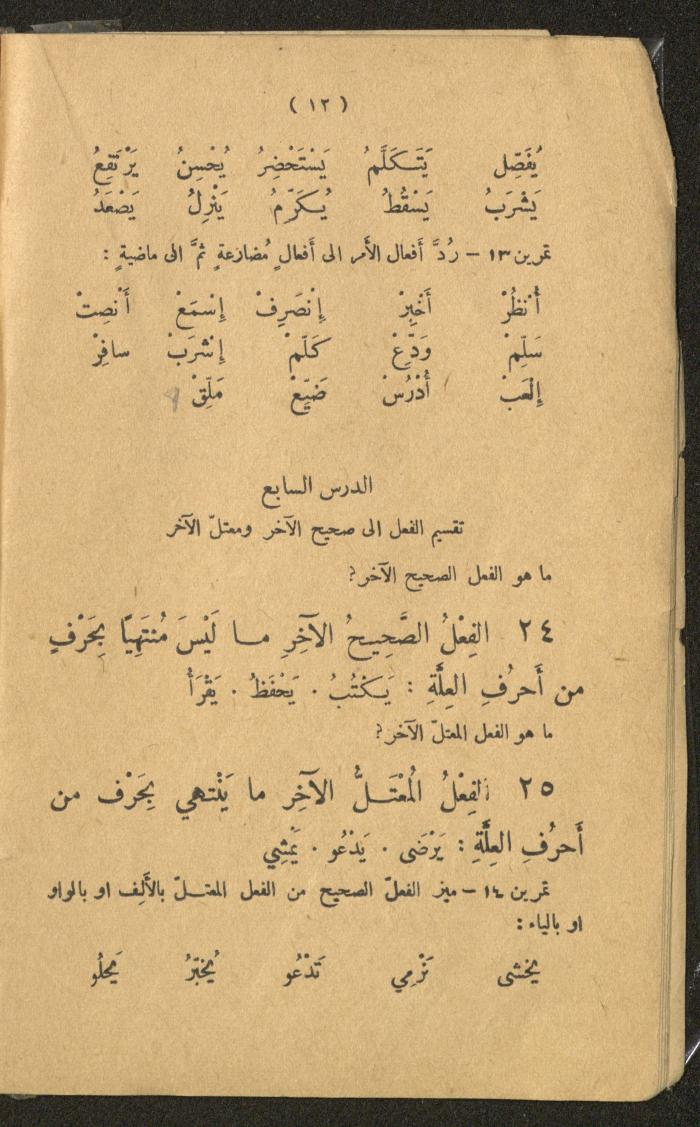 ( ١٢ )
يُفَصِّل يَتَكَلَّمُ يَسْتَحْضِرُ يُحْسِنُ يَرْتَفِعُ
يَشْرَبُ يَسْقُطُ يُكَرِّمُ يَنْزِلُ يَصْعَدُ
تمرين ١٣ – رُدَّ أَفعال الأَمر الى أَفعالٍ مُضارَعةٍ ثمَّ الى ماضيةٍ :
أُنْظُرْ أَخْبِرْ إِنْصَرِفْ إِسْمَعْ أَنْصِتْ
سَلِّمْ وَدِّعْ كَلِّمْ إِشْرَبْ سافِرْ
إِلْعَبْ أُدْرُسْ ضَيِّعْ مَلِّقْ
الدرس السابع
تقسيم الفعل الى صحيح الآخر ومعتلّ الآخر
ما هو الفعل الصحيح الآخر؟
٢٤ الفِعْلُ الصَّحِيحُ الآخِرِ مـا لَيْسَ مُنْتَهِيًا بِحَرْفٍ
من أَحرُفِ العِلَّةِ : يَكْتُبُ . يَحْفَظُ . يَقْرَأُ
ما هو الفعل المعتلّ الآخر؟
٢٥ الفِعْلُ المُعْتَلُّ الآخِرِ ما يَنْتهي بِحَرْف من
أَحرُفِ العِلَّةِ : يَرْضَى . يَدْعُو . يَمْشِي
تمرين ١٤ – ميز الفعلَ الصحيح من الفعل المعتلّ بالأَلِف او بالواو
او بالياء :
يخشى نَرْمِي تَدْعُو يُخبِّرُ يَحلُو